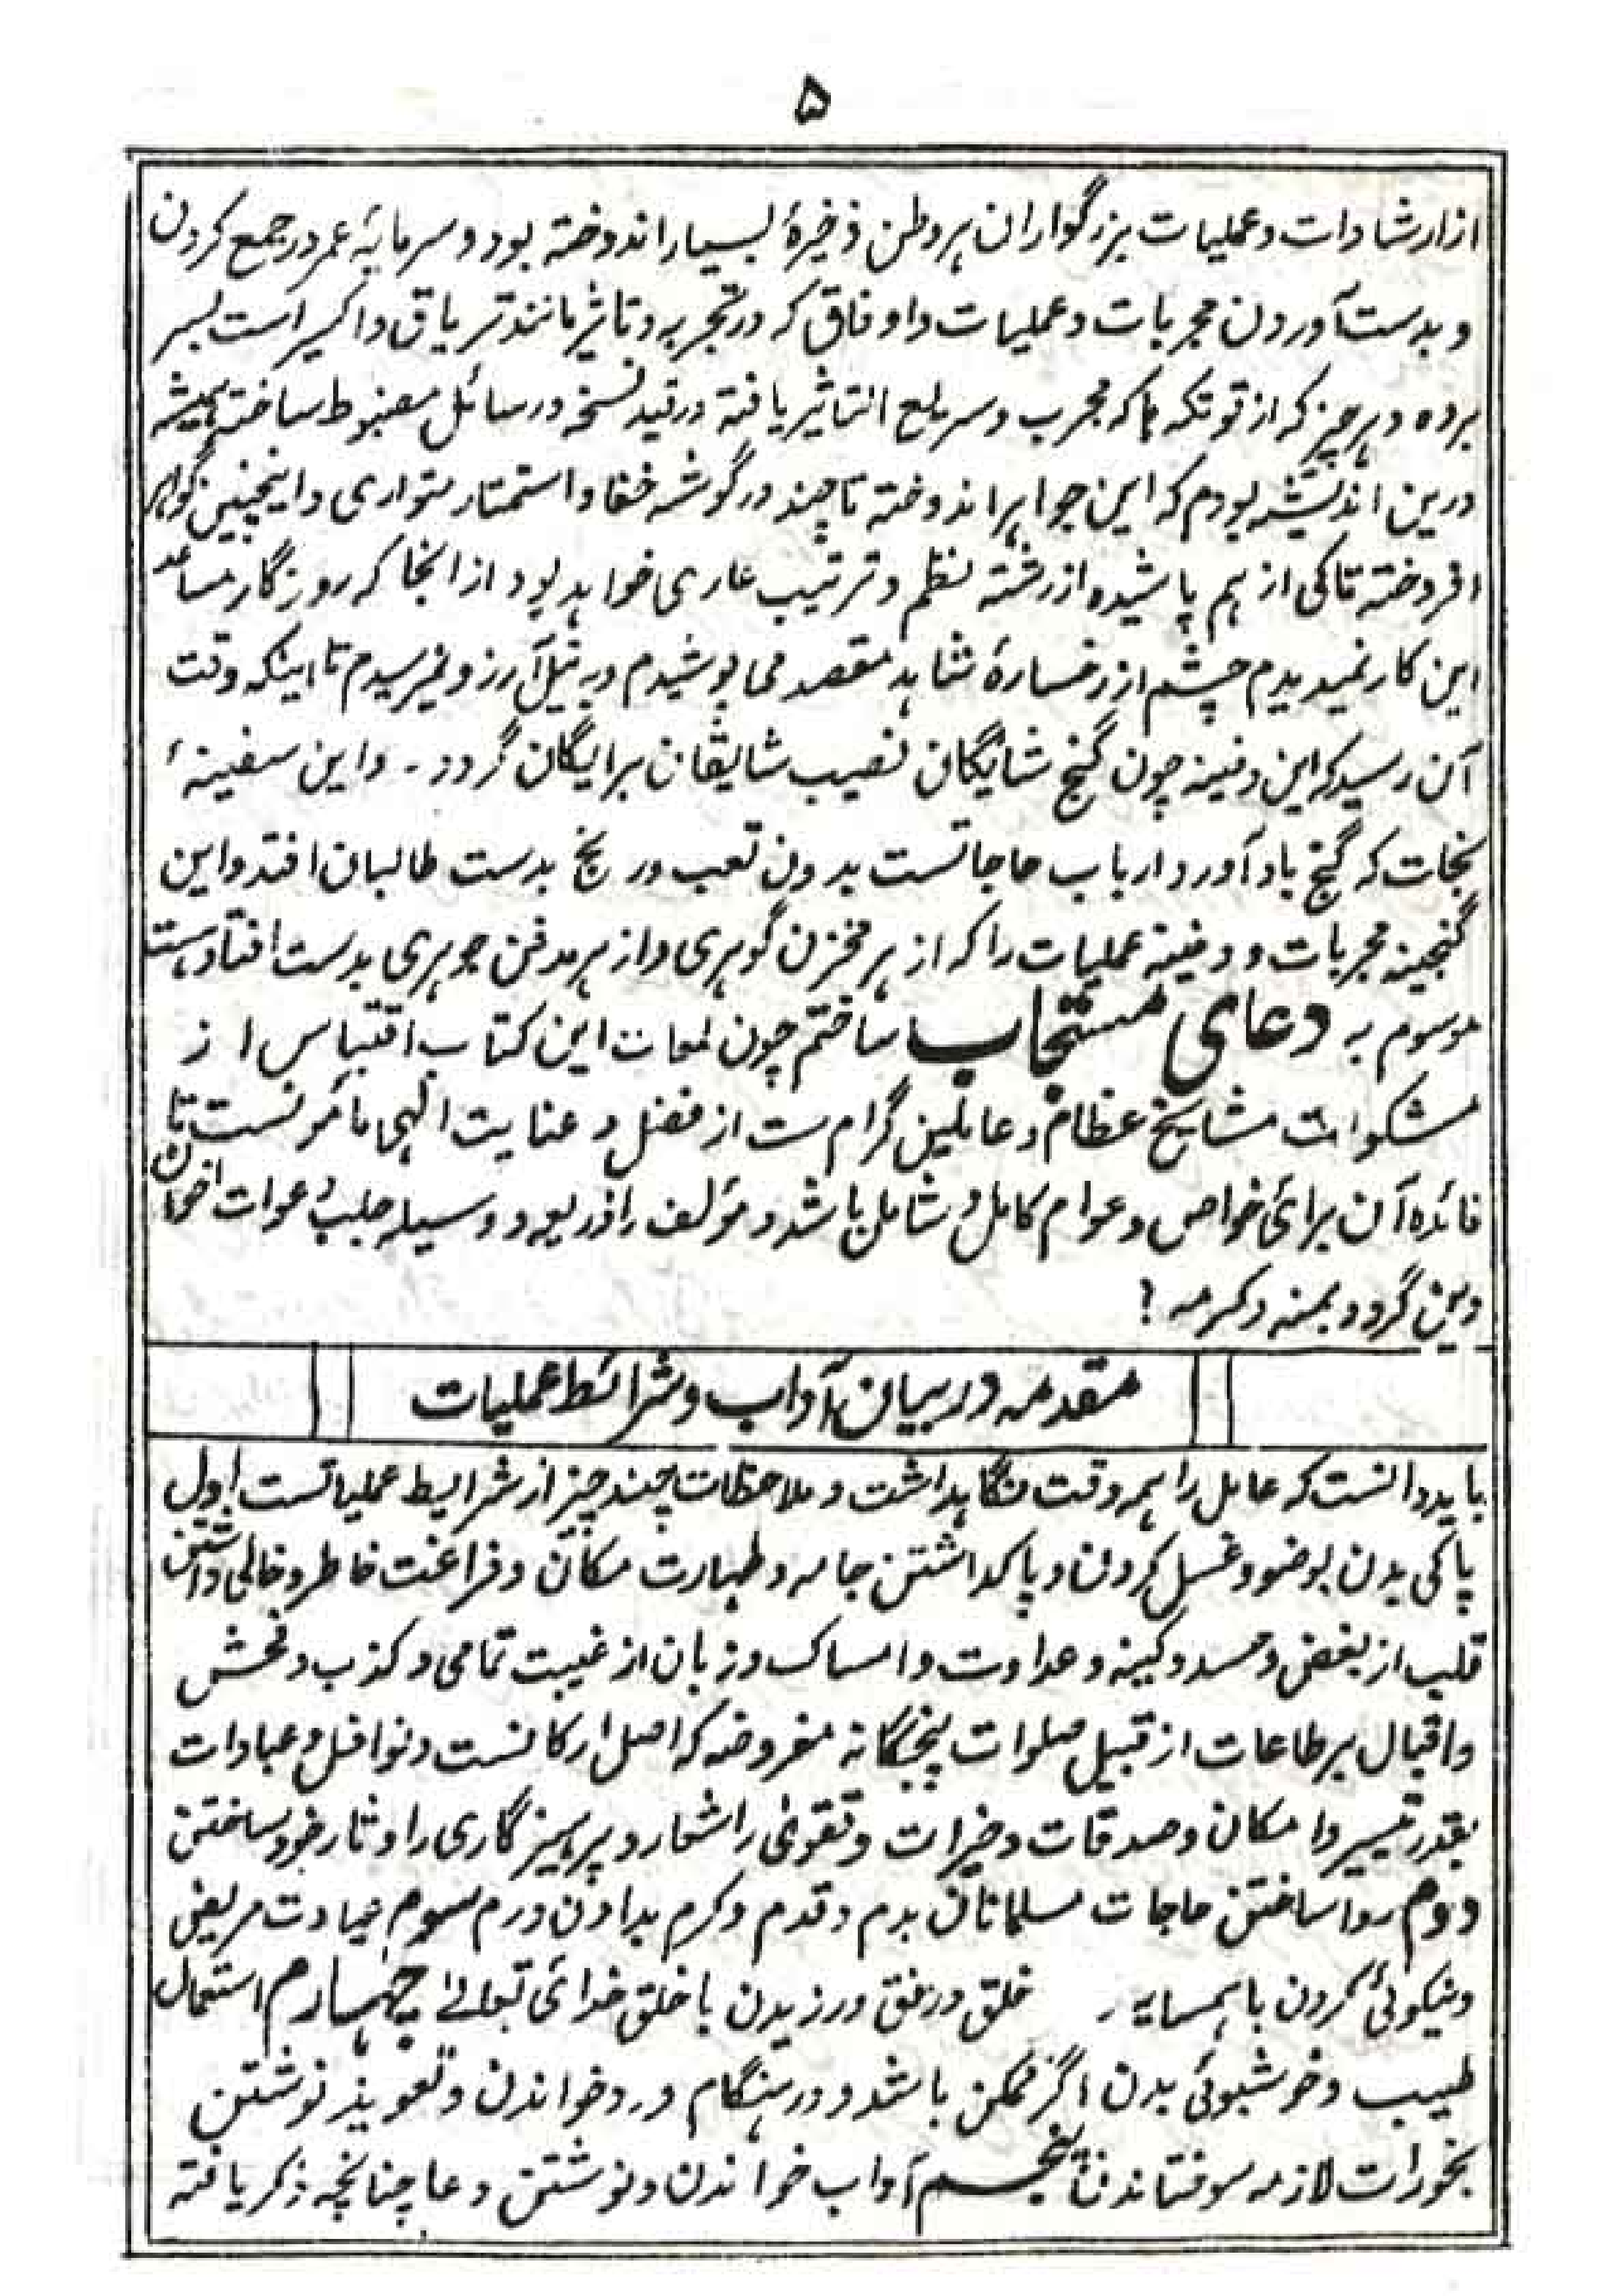 ۵
از ارشادات و عملیات بزرگواران ہر وطن ذخیرۂ بسیار اندوختہ بود و سرمایۂ عمر در جمع کردن
و بدست آوردن مجربات و عملیات و اوفاق کہ در تجربہ و تاثیر مانند تریاق و اکسیر است بسر
بردہ و ہر چیز کہ از قوتکہ ما کہ مجرب و سریع التاثیر یافتہ در قید نسخہ در سائل مضبوط ساختہ ہمیشہ
درین اندیشہ بودم کہ این جواہر اندوختہ تا چند در گوشہ خفا و استتار متواری و اینچنین گواہر
افروختہ تاکی از ہم پاشیدہ از رشتہ نظم و ترتیب عاری خواہد بود از انجا کہ روزگار مساعد
این کار نمیدیدم چشم از رخسارۂ شاہد مقصد می پوشیدم و بہ نیل آرزو نمیرسیدم تا اینکہ وقت
آن رسید کہ این دفینہ چون گنج شائگان نصیب شایقان برایگان گردد ۔ و این سفینۂ
نجات کہ گنج باد آورد ارباب حاجاتست بدون تعب و رنج بدست طالبان افتد و این
گنجینہ مجربات و دفینہ عملیات را کہ از ہر مخزن گوہری و از ہر مدفن جوہری بدست افتادہ است
موسوم بہ دعای مستجاب ساختم چون لمعات این کتاب اقتباس از
مشکوات مشایخ عظام و عاملین کرام ست از فضل و عنایت الٰہی مامؤنست تا
فائدہ آن برائ خواص و عوام کامل و شامل باشد و مؤلف را ذریعہ و وسیلہ جلب دعوات اخوان
دین گردد بمنہ و کرمہ ؟
مقدمہ در بیان آداب و شرائط عملیات
باید دانست کہ عامل را ہمہ وقت نگاہداشت و ملاحظات چند چیز از شرایط عملیاتست اول
پاکی بدن بوضو و غسل کردن و پاکداشتن جامہ و طہارت مکان و فراغت خاطر و خالی داشتن
قلب از بغض و حسد و کینہ و عداوت و امساک و زبان از غیبت تمامی و کذب و فحش
و اقبال بر طاعات از قبیل صلوات پنجگانہ مفروضہ کہ اصل ارکانست و نوافل و عبادات
بقدر تیسیر و امکان و صدقات و خیرات و تقوٰی را شعار و پرہیزگاری را دثار خود ساختن
دوم روا ساختن حاجات مسلمانان بدم و قدم و کرم بدادن درم سوم عیادت مریض
و نیکوئی کردن با ہمسایہ ر خلق و رفق ورزیدن با خلق خدائ تعالے چہارم استعمال
طیب و خوشبوئی بدن اگر ممکن باشد و در ہنگام ورد خواندن و تعویذ نوشتن
بخورات لازمہ سوختاندن پنجم آداب خواندن و نوشتن دعا چنانچہ ذکر یافتہ